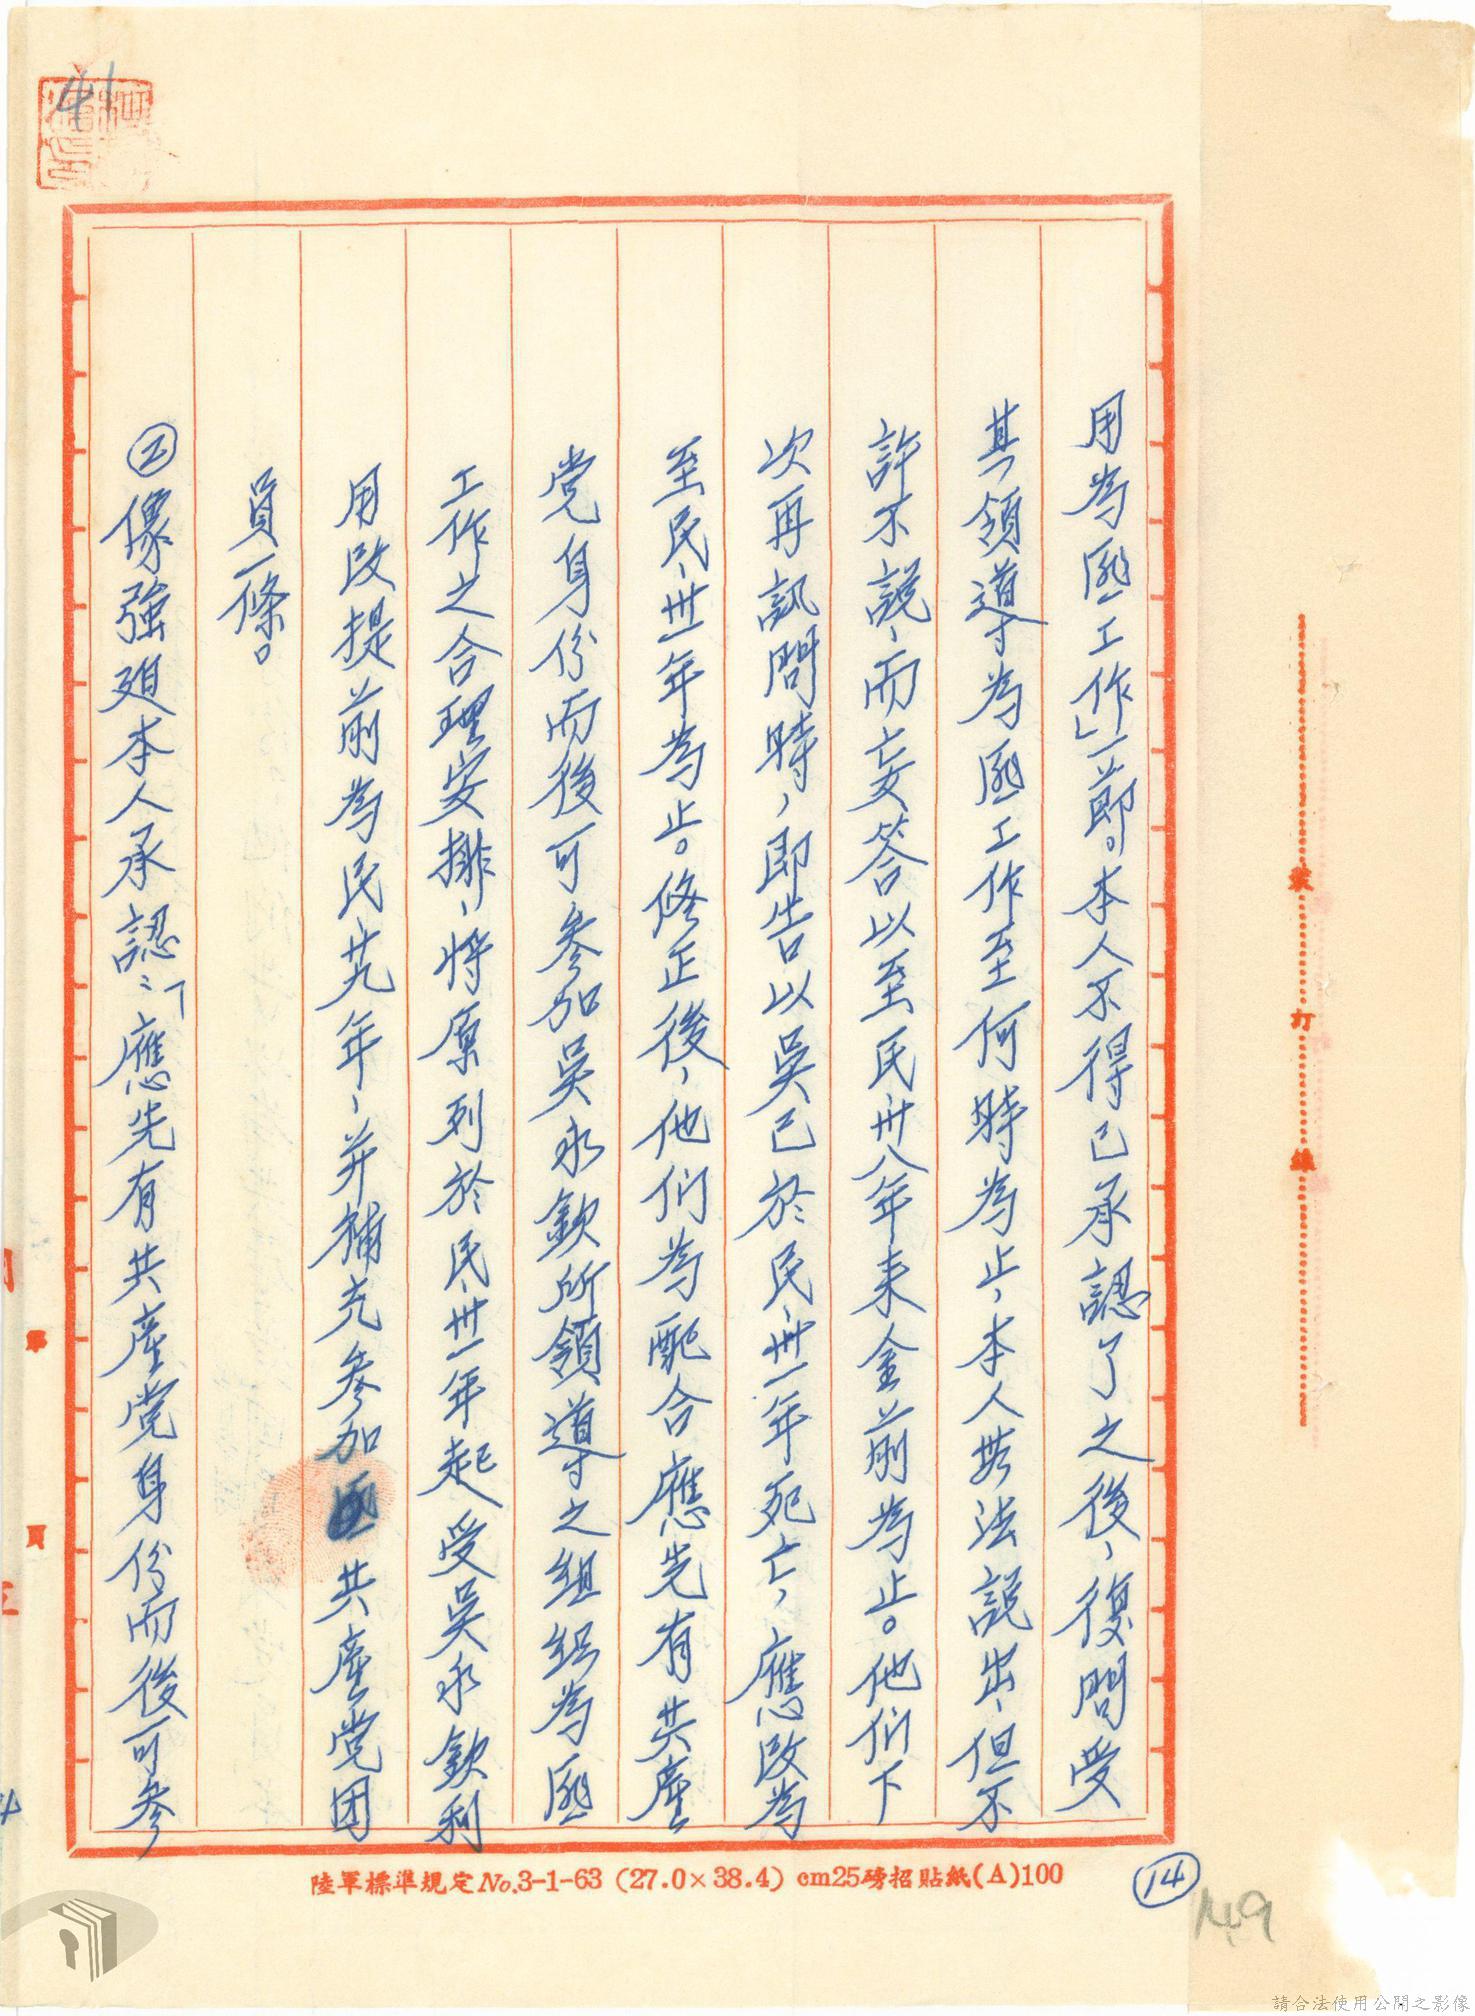 41
用為匪工作」一節。本人不得已承認了之後，復問受
其領導為匪工作至何時為止，本人無法說出，但不
許不說，而妄答以至民卅八年來金前為止。他們下
次再訊問時，即告以吳已於民卅一年死亡，應改為
至民卅一年為止。修正後，他們為配合應先有共產
党身份而後可參加吳永欽所領導之組織為匪
工作之合理安排，將原列於民卅一年起受吳永欽利
用改提前為民廿九年，并補充參加匪共產党团
員一條。
②像強廹本人承認：「應先有共產党身份而後可參
裝
訂
線
第
頁
陸軍標準規定No.3-1-63 (27.0×38.4) cm25磅招貼紙(A)100
14
149
請合法使用公開之影像